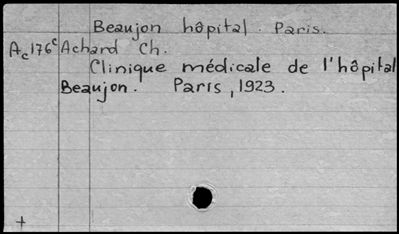 Beaujon hôpital. Paris.
Ac176c Achard Ch.
Clinique médicale de l'hôpital
Beaujon. Paris, 1923.
+